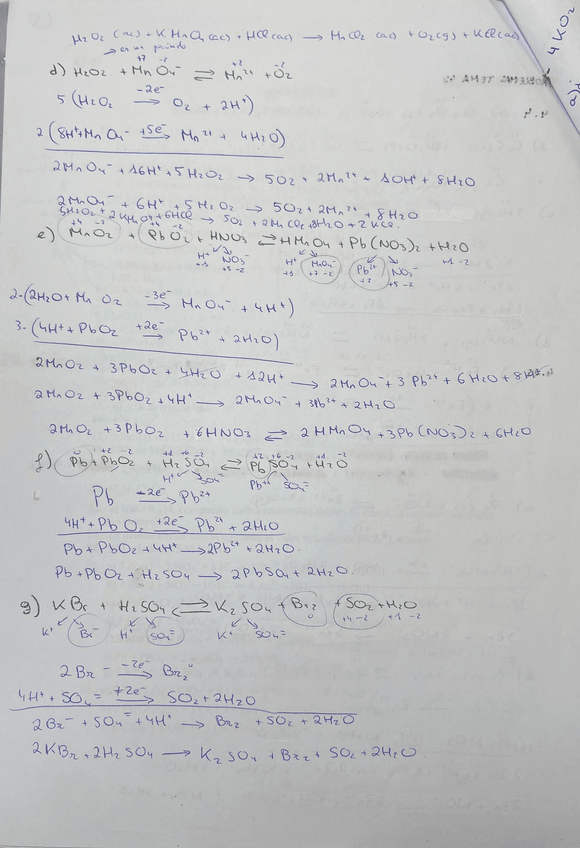 H₂O₂ (ac) + KMnO₄ (ac) + HCl (ac) → MnCl₂ (ac) + O₂(g) + KCl(ac)
+7 -2 +2 -2
d) H₂O₂ + MnO₄⁻ ⇌ Mn²⁺ + O₂
5 (H₂O₂ -2e⁻→ O₂ + 2H⁺)
2 (8H⁺ + MnO₄⁻ +5e⁻→ Mn²⁺ + 4H₂O)
2MnO₄⁻ + 16H⁺ + 5H₂O₂ → 5O₂ + 2Mn²⁺ + 10H⁺ + 8H₂O
2MnO₄⁻ + 6H⁺ + 5H₂O₂ → 5O₂ + 2Mn²⁺ + 8H₂O
5H₂O₂ + 2KMnO₄ + 6HCl → 5O₂ + 2MnCl₂ + 8H₂O + 2KCl
+4 -2 +4 -2
e) MnO₂ + PbO₂ + HNO₃ ⇌ HMnO₄ + Pb(NO₃)₂ + H₂O
H⁺ NO₃⁻ H⁺ MnO₄⁻ Pb²⁺ NO₃⁻ +1 -2
+1 +5 -2 +1 +7 -2 +2 +5 -2
2·(2H₂O + MnO₂ -3e⁻→ MnO₄⁻ + 4H⁺)
3·(4H⁺ + PbO₂ +2e⁻→ Pb²⁺ + 2H₂O)
2MnO₂ + 3PbO₂ + 4H₂O + 12H⁺ → 2MnO₄⁻ + 3Pb²⁺ + 6H₂O + 8H⁺
2MnO₂ + 3PbO₂ + 4H⁺ → 2MnO₄⁻ + 3Pb²⁺ + 2H₂O
2MnO₂ + 3PbO₂ + 6HNO₃ ⇌ 2HMnO₄ + 3Pb(NO₃)₂ + 6H₂O
0 +2 -2 +1 +6 -2 +2 +6 -2 +1 -2
f) Pb + PbO₂ + H₂SO₄ ⇌ PbSO₄ + H₂O
H⁺ SO₄⁼ Pb²⁺ SO₄⁼
Pb -2e⁻→ Pb²⁺
4H⁺ + PbO₂ +2e⁻→ Pb²⁺ + 2H₂O
Pb + PbO₂ + 4H⁺ → 2Pb²⁺ + 2H₂O.
Pb + PbO₂ + H₂SO₄ → 2PbSO₄ + 2H₂O.
g) KBr + H₂SO₄ ⇌ K₂SO₄ + Br₂ + SO₂ + H₂O
K⁺ Br⁻ H⁺ SO₄⁼ K⁺ SO₄⁼ 0 +4 -2 +1 -2
2Br⁻ -2e⁻→ Br₂⁰
4H⁺ + SO₄⁼ +2e⁻→ SO₂ + 2H₂O
2Br⁻ + SO₄⁼ + 4H⁺ → Br₂ + SO₂ + 2H₂O
2KBr + 2H₂SO₄ → K₂SO₄ + Br₂ + SO₂ + 2H₂O
4KO₂